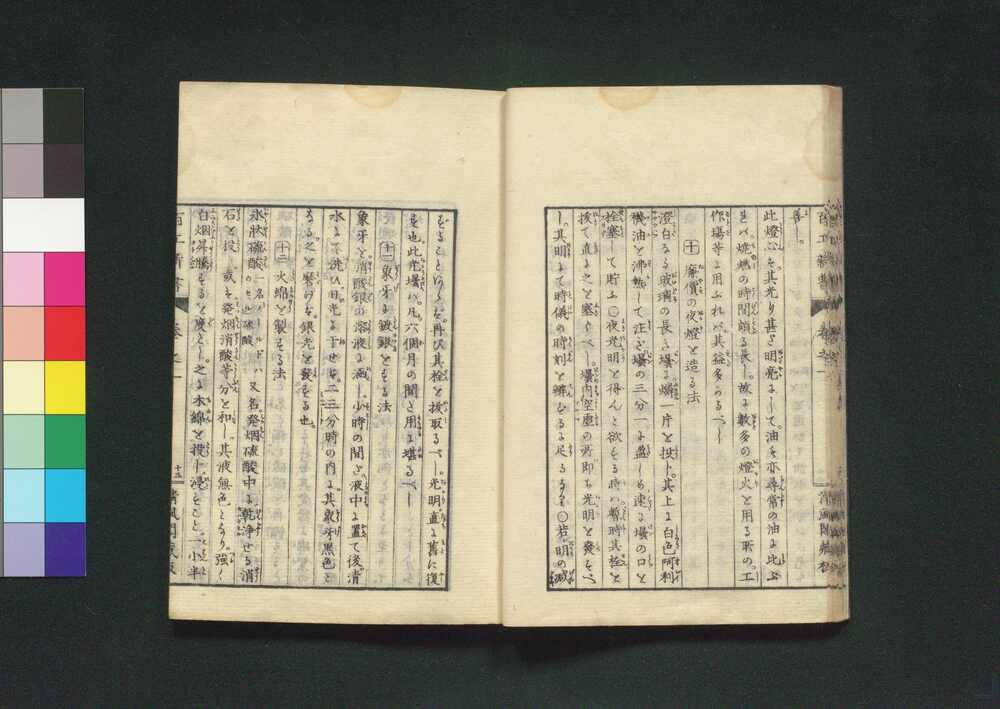 善し。
此燈ハ其光り甚だ明亮にして油も亦尋常の油に比ぶ
れバ焼燃の時間頗る長し故に数多の燈火を用る所の工
作場等に用ふれバ其益多かるべし
十 廉價の夜燈を造る法
澄白なる玻璃の長き壜に燐一片を投下し其上に白色阿利
襪油を沸熱して注ぎ壜の三分一に盛しめ速に壜の口を
栓塞して貯ふ○夜光明を得んと欲する時ハ暫時其栓を
抜て直に之を塞ぐべし。壜内空虚の所即ち光明を発すべ
し。其明にて時儀の時刻を辨ずるに足るなり○若明の減
ずることあらバ再び其栓を抜取るべし。光明直に舊に復
す也此光壜ハ凡六個月の間ハ用に堪るべし
十一 象牙に鍍銀をする法
象牙を消酸銀の溶液に洒し小時の間ダ液中に置て後清
水にて洗ひ日光に干せバ二三分時の内に其象牙黒色と
なる之を磨けバ銀光を発する也。
十二 火綿を製する法
氷状硫酸 一名ノールドハ 又名発烟硫酸中に乾浄せる消
石を投じ或ハ発烟消酸等分を和し其液無色となり。強く
白烟昇騰するを度とし。之に木綿を投じ浸すこと一小半
百工新書 巻之一
十五